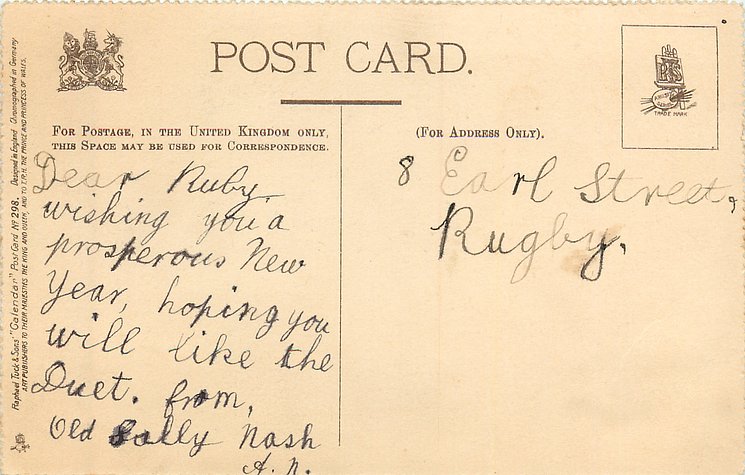 POST CARD.
FOR POSTAGE, IN THE UNITED KINGDOM ONLY,
THIS SPACE MAY BE USED FOR CORRESPONDENCE.
(FOR ADDRESS ONLY).
TRADE MARK
Raphael Tuck & Sons' "Calendar" Post Card No 298. Designed in England Chromographed in Germany
ART PUBLISHERS TO THEIR MAJESTIES THE KING AND QUEEN, AND TO T.R.H. THE PRINCE AND PRINCESS OF WALES.
Dear Ruby
wishing you a
prosperous New
Year, hoping you
will like the
Duet. from,
Old Sally Nash
A. N.
8 Earl Street,
Rugby.